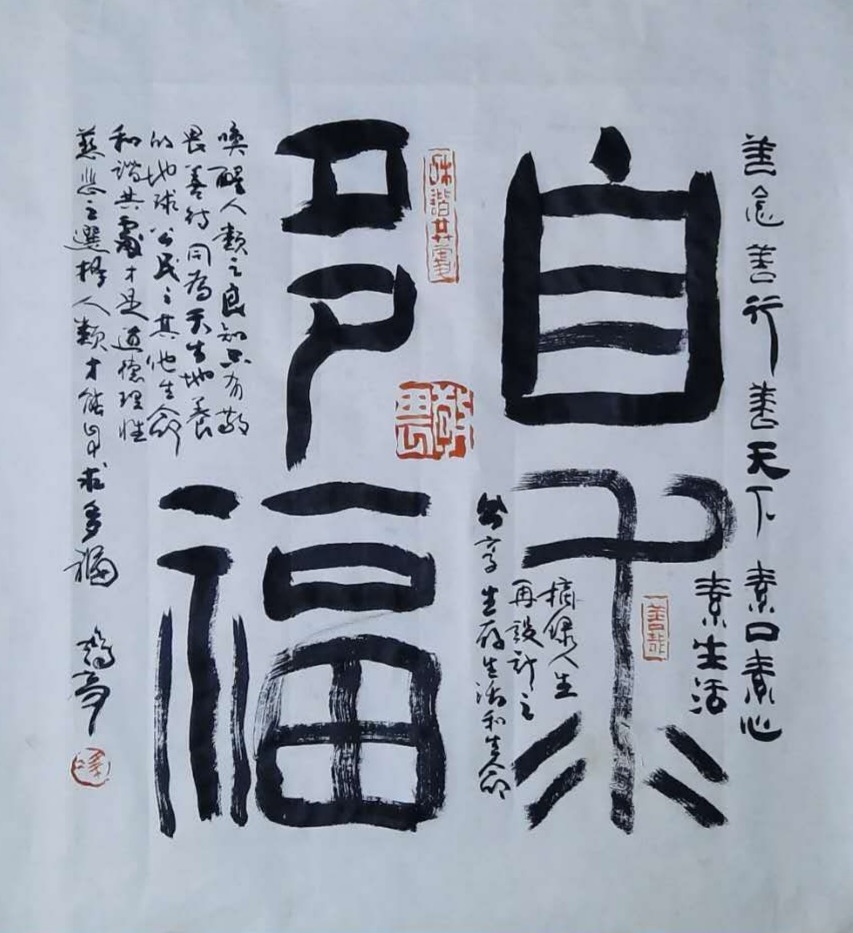 善念善行善天下 素口素心
素生活
自求
善哉
人生
再設計之
享生存生活和生命
敬畏
和諧共
多福
喚醒人類之良知只有敬
畏善待同為天生地養
的地球公民之其他生命
和諧共處才是道德理性
慈悲之選擇人類才能自求多福